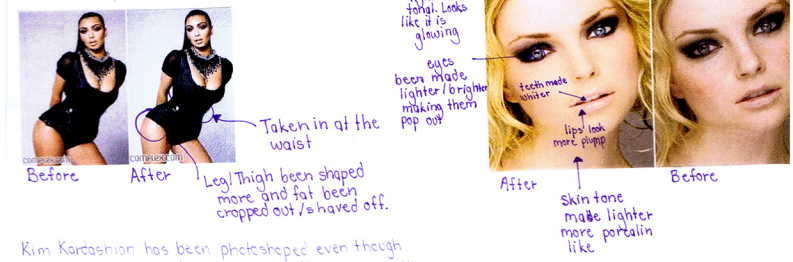 complex.com
complex.com
Before
After
Taken in at the
waist
Leg/Thigh been shaped
more and fat been
cropped out/shaved off.
Kim Kardashian has been photoshoped even though
tonal. Looks
like it is
glowing
eyes
been made
lighter/brighter
making them
pop out
teeth made
whiter
lips look
more plump
After
Before
skin tone
made lighter
more porcalin
like